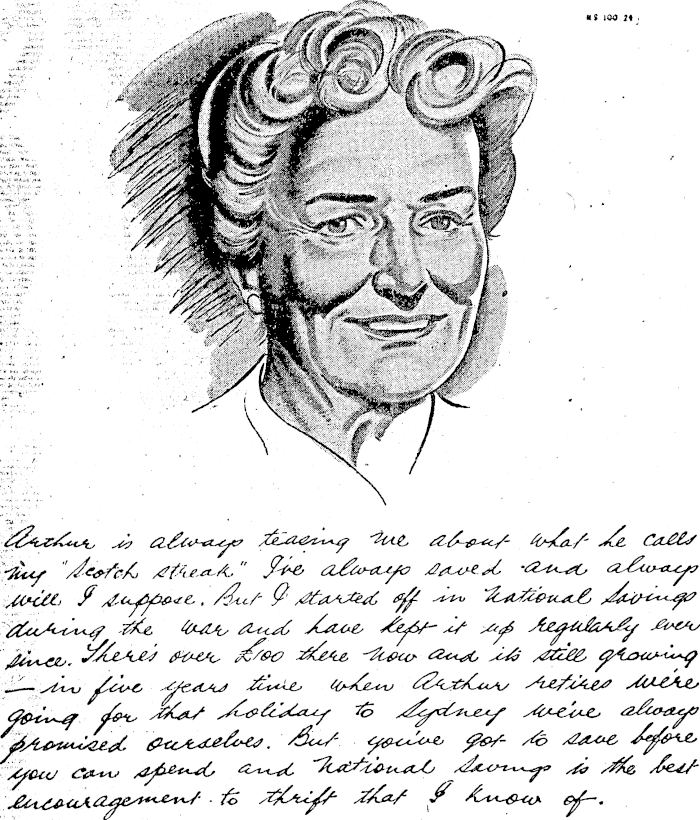 NS 100 24
Arthur is always teasing me about what he calls
my "Scotch streak" I've always saved and always
will I suppose. But I started off in National Savings
during the war and have kept it up regularly ever
since. There's over £100 there now and its still growing
— in five years time when Arthur retires we're
going for that holiday to Sydney we've always
promised ourselves. But you've got to save before
you can spend and National Savings is the best
encouragement to thrift that I know of.